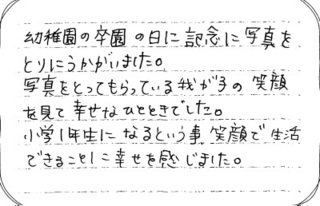 幼稚園の卒園の日に記念に写真を
とりにうかがいました。
写真をとってもらっている我が子の笑顔
を見て幸せなひとときでした。
小学1年生になるという事、笑顔で生活
できることに幸せを感じました。